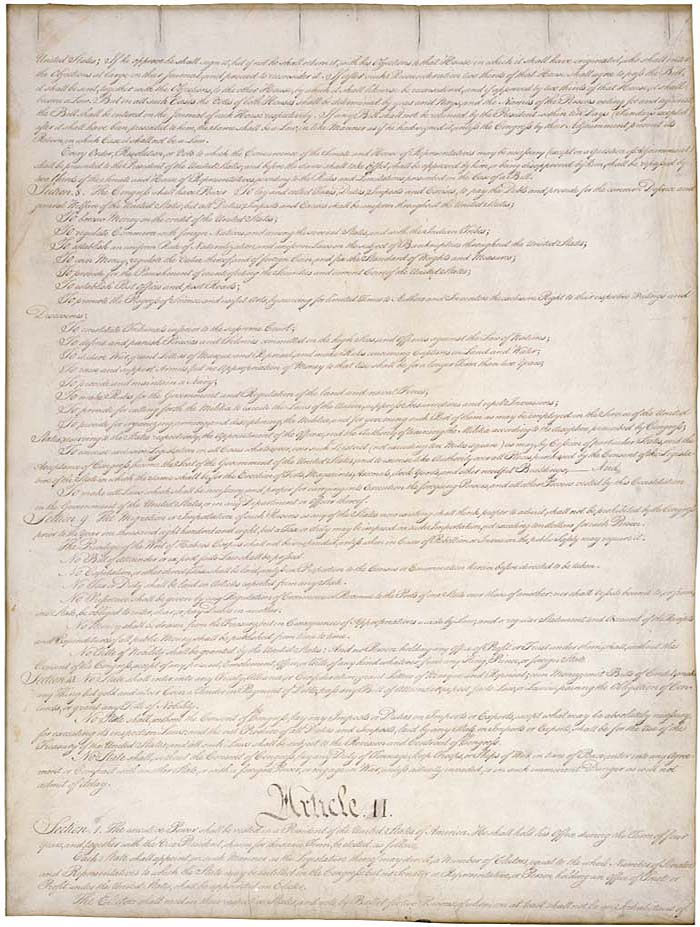 United States; If he approve he shall sign it, but if not he shall return it, with his Objections to that House in which it shall have originated, who shall enter
the Objections at large on their Journal, and proceed to reconsider it. If after such Reconsideration two thirds of that House shall agree to pass the Bill,
it shall be sent, together with the Objections, to the other House, by which it shall likewise be reconsidered, and if approved by two thirds of that House, it shall
become a Law. But in all such Cases the Votes of both Houses shall be determined by yeas and Nays, and the Names of the Persons voting for and against
the Bill shall be entered on the Journal of each House respectively. If any Bill shall not be returned by the President within ten Days (Sundays excepted)
after it shall have been presented to him, the Same shall be a Law, in like Manner as if he had signed it, unless the Congress by their Adjournment prevent its
Return, in which Case it shall not be a Law.
Every Order, Resolution, or Vote to which the Concurrence of the Senate and House of Representatives may be necessary (except on a question of Adjournment)
shall be presented to the President of the United States; and before the Same shall take Effect, shall be approved by him, or being disapproved by him, shall be repassed by
two thirds of the Senate and House of Representatives, according to the Rules and Limitations prescribed in the Case of a Bill.
Section. 8. The Congress shall have Power To lay and collect Taxes, Duties, Imposts and Excises, to pay the Debts and provide for the common Defence and
general Welfare of the United States; but all Duties, Imposts and Excises shall be uniform throughout the United States;
To borrow Money on the credit of the United States;
To regulate Commerce with foreign Nations, and among the several States, and with the Indian Tribes;
To establish an uniform Rule of Naturalization, and uniform Laws on the subject of Bankruptcies throughout the United States;
To coin Money, regulate the Value thereof, and of foreign Coin, and fix the Standard of Weights and Measures;
To provide for the Punishment of counterfeiting the Securities and current Coin of the United States;
To establish Post Offices and post Roads;
To promote the Progress of Science and useful Arts, by securing for limited Times to Authors and Inventors the exclusive Right to their respective Writings and
Discoveries;
To constitute Tribunals inferior to the supreme Court;
To define and punish Piracies and Felonies committed on the high Seas, and Offences against the Law of Nations;
To declare War, grant Letters of Marque and Reprisal, and make Rules concerning Captures on Land and Water;
To raise and support Armies, but no Appropriation of Money to that Use shall be for a longer Term than two Years;
To provide and maintain a Navy;
To make Rules for the Government and Regulation of the land and naval Forces;
To provide for calling forth the Militia to execute the Laws of the Union, suppress Insurrections and repel Invasions;
To provide for organizing, arming, and disciplining, the Militia, and for governing such Part of them as may be employed in the Service of the United
States, reserving to the States respectively, the Appointment of the Officers, and the Authority of training the Militia according to the discipline prescribed by Congress;
To exercise exclusive Legislation in all Cases whatsoever, over such District (not exceeding ten Miles square) as may, by Cession of particular States, and the
Acceptance of Congress, become the Seat of the Government of the United States, and to exercise like Authority over all Places purchased by the Consent of the Legislature
of the State in which the Same shall be, for the Erection of Forts, Magazines, Arsenals, dock-Yards, and other needful Buildings; — And
To make all Laws which shall be necessary and proper for carrying into Execution the foregoing Powers, and all other Powers vested by this Constitution
in the Government of the United States, or in any Department or Officer thereof.
Section. 9. The Migration or Importation of such Persons as any of the States now existing shall think proper to admit, shall not be prohibited by the Congress
prior to the Year one thousand eight hundred and eight, but a Tax or duty may be imposed on such Importation, not exceeding ten dollars for each Person.
The Privilege of the Writ of Habeas Corpus shall not be suspended, unless when in Cases of Rebellion or Invasion the public Safety may require it.
No Bill of Attainder or ex post facto Law shall be passed.
No Capitation, or other direct, Tax shall be laid, unless in Proportion to the Census or Enumeration herein before directed to be taken.
No Tax or Duty shall be laid on Articles exported from any State.
No Preference shall be given by any Regulation of Commerce or Revenue to the Ports of one State over those of another: nor shall Vessels bound to, or from,
one State, be obliged to enter, clear, or pay Duties in another.
No Money shall be drawn from the Treasury, but in Consequence of Appropriations made by Law; and a regular Statement and Account of the Receipts
and Expenditures of all public Money shall be published from time to time.
No Title of Nobility shall be granted by the United States: And no Person holding any Office of Profit or Trust under them, shall, without the
Consent of the Congress, accept of any present, Emolument, Office, or Title, of any kind whatever, from any King, Prince, or foreign State.
Section. 10. No State shall enter into any Treaty, Alliance, or Confederation; grant Letters of Marque and Reprisal; coin Money; emit Bills of Credit; make
any Thing but gold and silver Coin a Tender in Payment of Debts; pass any Bill of Attainder, ex post facto Law, or Law impairing the Obligation of Con-
tracts, or grant any Title of Nobility.
No State shall, without the Consent of the Congress, lay any Imposts or Duties on Imports or Exports, except what may be absolutely necessary
for executing it's inspection Laws: and the net Produce of all Duties and Imposts, laid by any State on Imports or Exports, shall be for the Use of the
Treasury of the United States; and all such Laws shall be subject to the Revision and Controul of the Congress.
No State shall, without the Consent of Congress, lay any Duty of Tonnage, keep Troops, or Ships of War in time of Peace, enter into any Agree-
ment or Compact with another State, or with a foreign Power, or engage in War, unless actually invaded, or in such imminent Danger as will not
admit of delay.
Article. II.
Section. 1. The executive Power shall be vested in a President of the United States of America. He shall hold his Office during the Term of four
Years, and, together with the Vice President, chosen for the same Term, be elected, as follows
Each State shall appoint, in such Manner as the Legislature thereof may direct, a Number of Electors, equal to the whole Number of Senators
and Representatives to which the State may be entitled in the Congress: but no Senator or Representative, or Person holding an Office of Trust or
Profit under the United States, shall be appointed an Elector.
The Electors shall meet in their respective States, and vote by Ballot for two Persons, of whom one at least shall not be an Inhabitant of